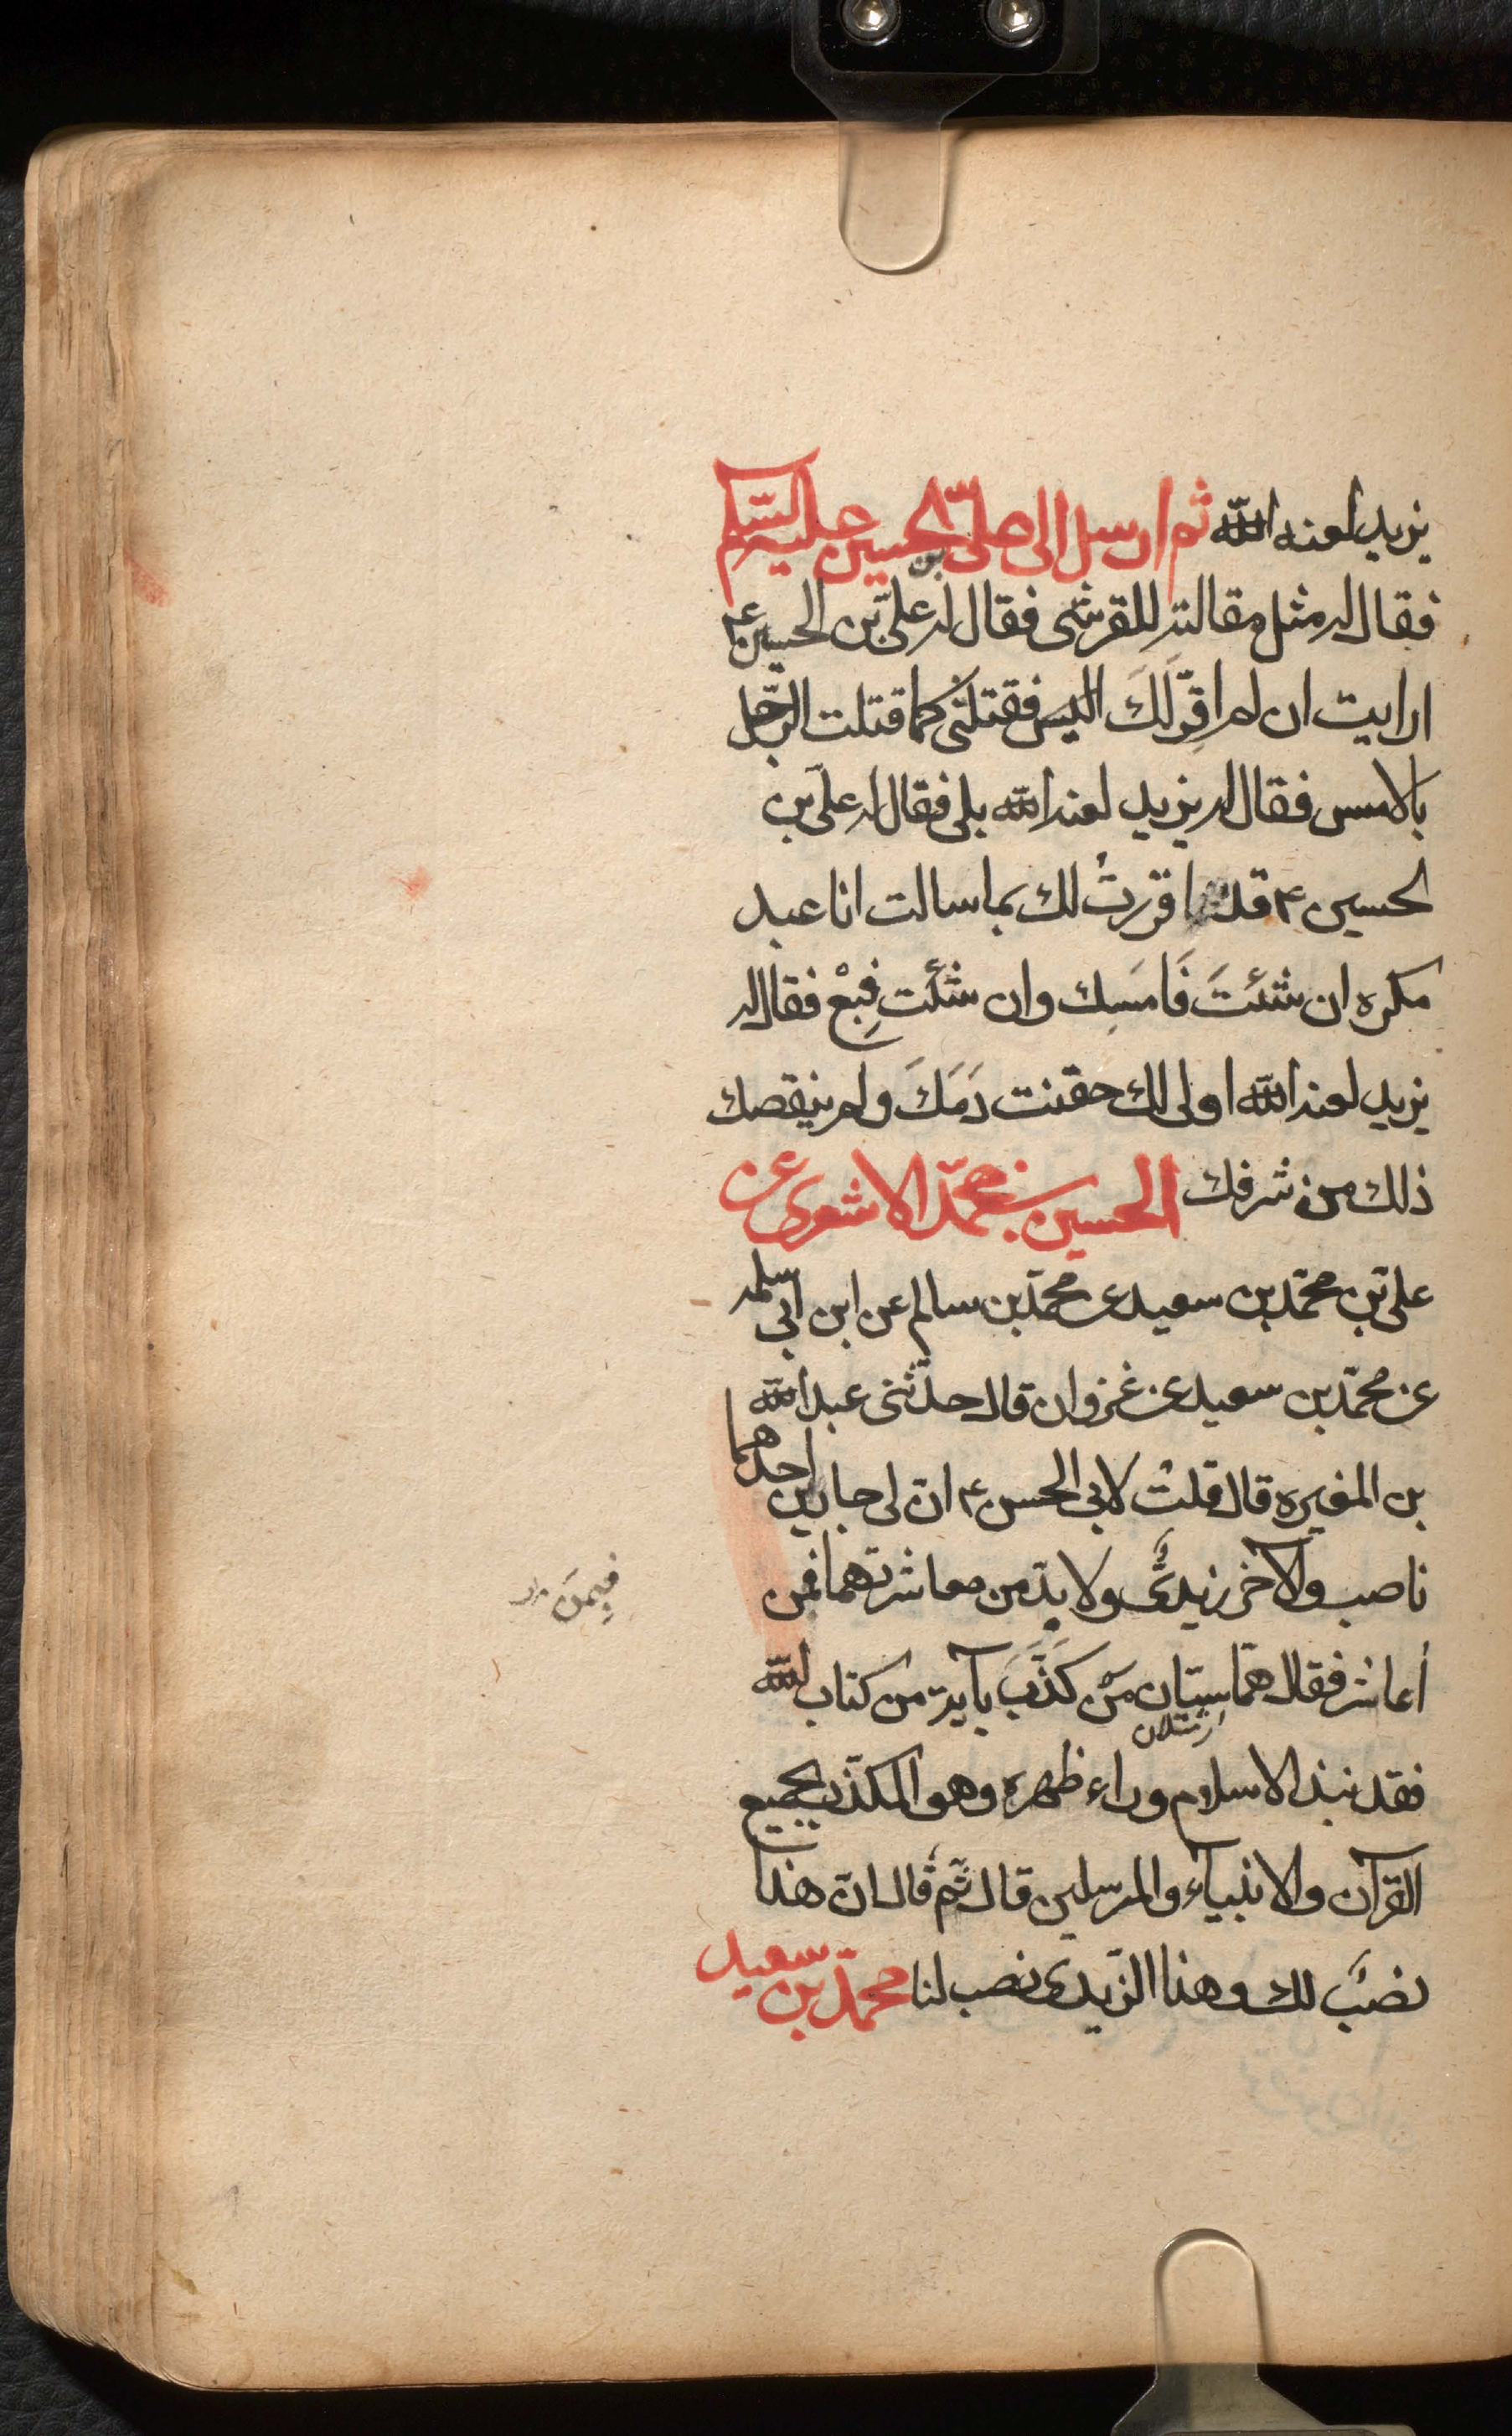 يزيد لعنه الله ثم ارسل الى على بن الحسين عليه السّلم
فقال له مثل مقالته للقرشى فقال له علىّ بن الحسين ع
ارايت ان لم اقرّ لَكَ اليس فقتلتنى كما قتلت الرّجل
بالامس فقال له يزيد لعنه الله بلى فقال له علىّ بن
الحسين ع قد اقررتُ لك بما سالت انا عبد
مكره ان شئتَ فَامسِك وان شئت فِبعْ فقال له
يزيد لعنه الله اولى لك حقنت دَمَكَ ولم ينقصك
ذلك من شرفك الحسين بن محمّد الاشعرى عن
علىّ بن محمّد بن سعيد عن محمّد بن سالم عن ابن ابى سلمه
عن محمّد بن سعيد عن غزوان قال حدّثنى عبد الله
بن المغيره قال قلتُ لابى الحسن ع ان لى جارين احدهما
ناصب والآخر زيدىٌّ ولا بدّ من معاشرتهما فمن
فيمَن
أعاشر فقال هما سيّان مَن كَذَّبَ بآية من كتاب الله
فقد نبذ الاسلام وراء ظهره وهو المكذّب بجميع
القرآن والانبيآء والمرسلين قال ثمّ قال انّ هذا
نصَبَ لك وهذا الزّيدى نصب لنا محمّد بن سعيد